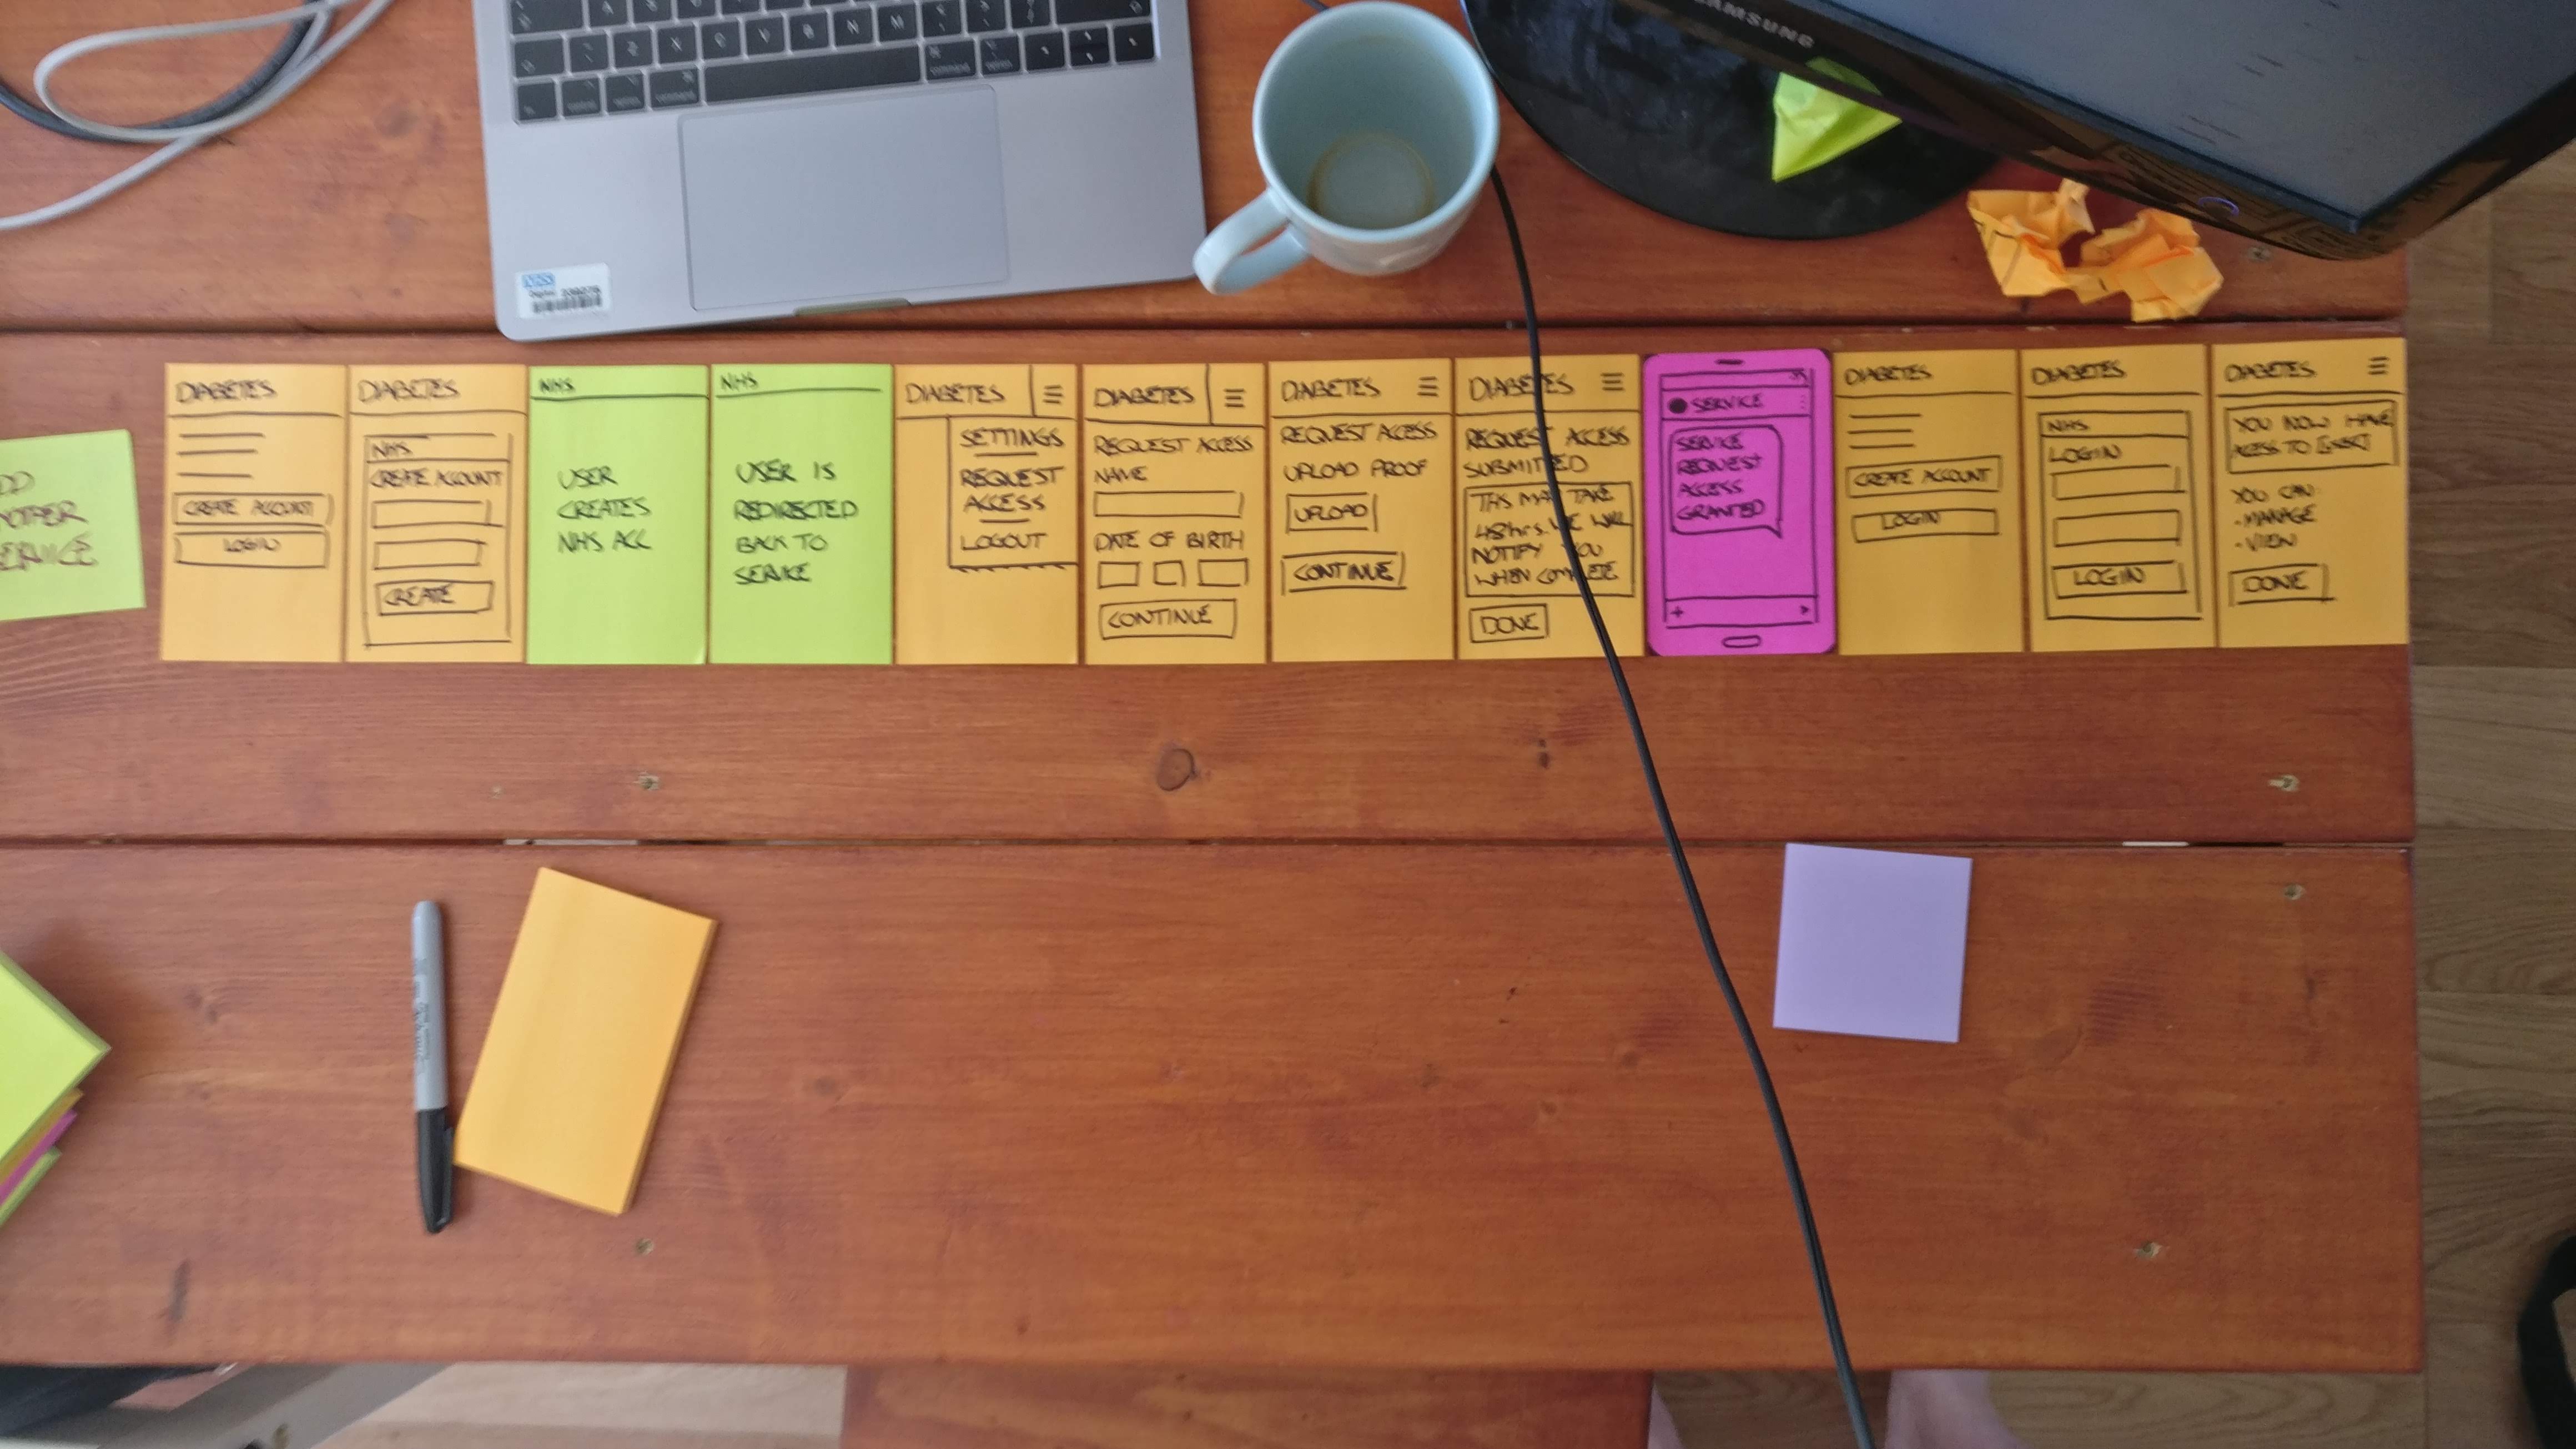 SAMSUNG
Z X C V B N M
command
NHS
Digital
DD
SERVICE
DIABETES
CREATE ACCOUNT
LOGIN
DIABETES
NHS
CREATE ACCOUNT
CREATE
NHS
USER
CREATES
NHS ACC
NHS
USER IS
REDIRECTED
BACK TO
SERVICE
DIABETES
SETTINGS
REQUEST
ACCESS
LOGOUT
DIABETES
REQUEST ACCESS
NAME
DATE OF BIRTH
CONTINUE
DIABETES
REQUEST ACCESS
UPLOAD PROOF
UPLOAD
CONTINUE
DIABETES
REQUEST ACCESS
SUBMITTED
THIS MAY TAKE
48hrs. WE WILL
NOTIFY YOU
WHEN COMPLETE
DONE
SERVICE
SERVICE
REQUEST
ACCESS
GRANTED
+
DIABETES
CREATE ACCOUNT
LOGIN
DIABETES
NHS
LOGIN
LOGIN
DIABETES
YOU NOW HAVE
ACCESS TO [INSERT]
YOU CAN:
- MANAGE
- VIEW
DONE